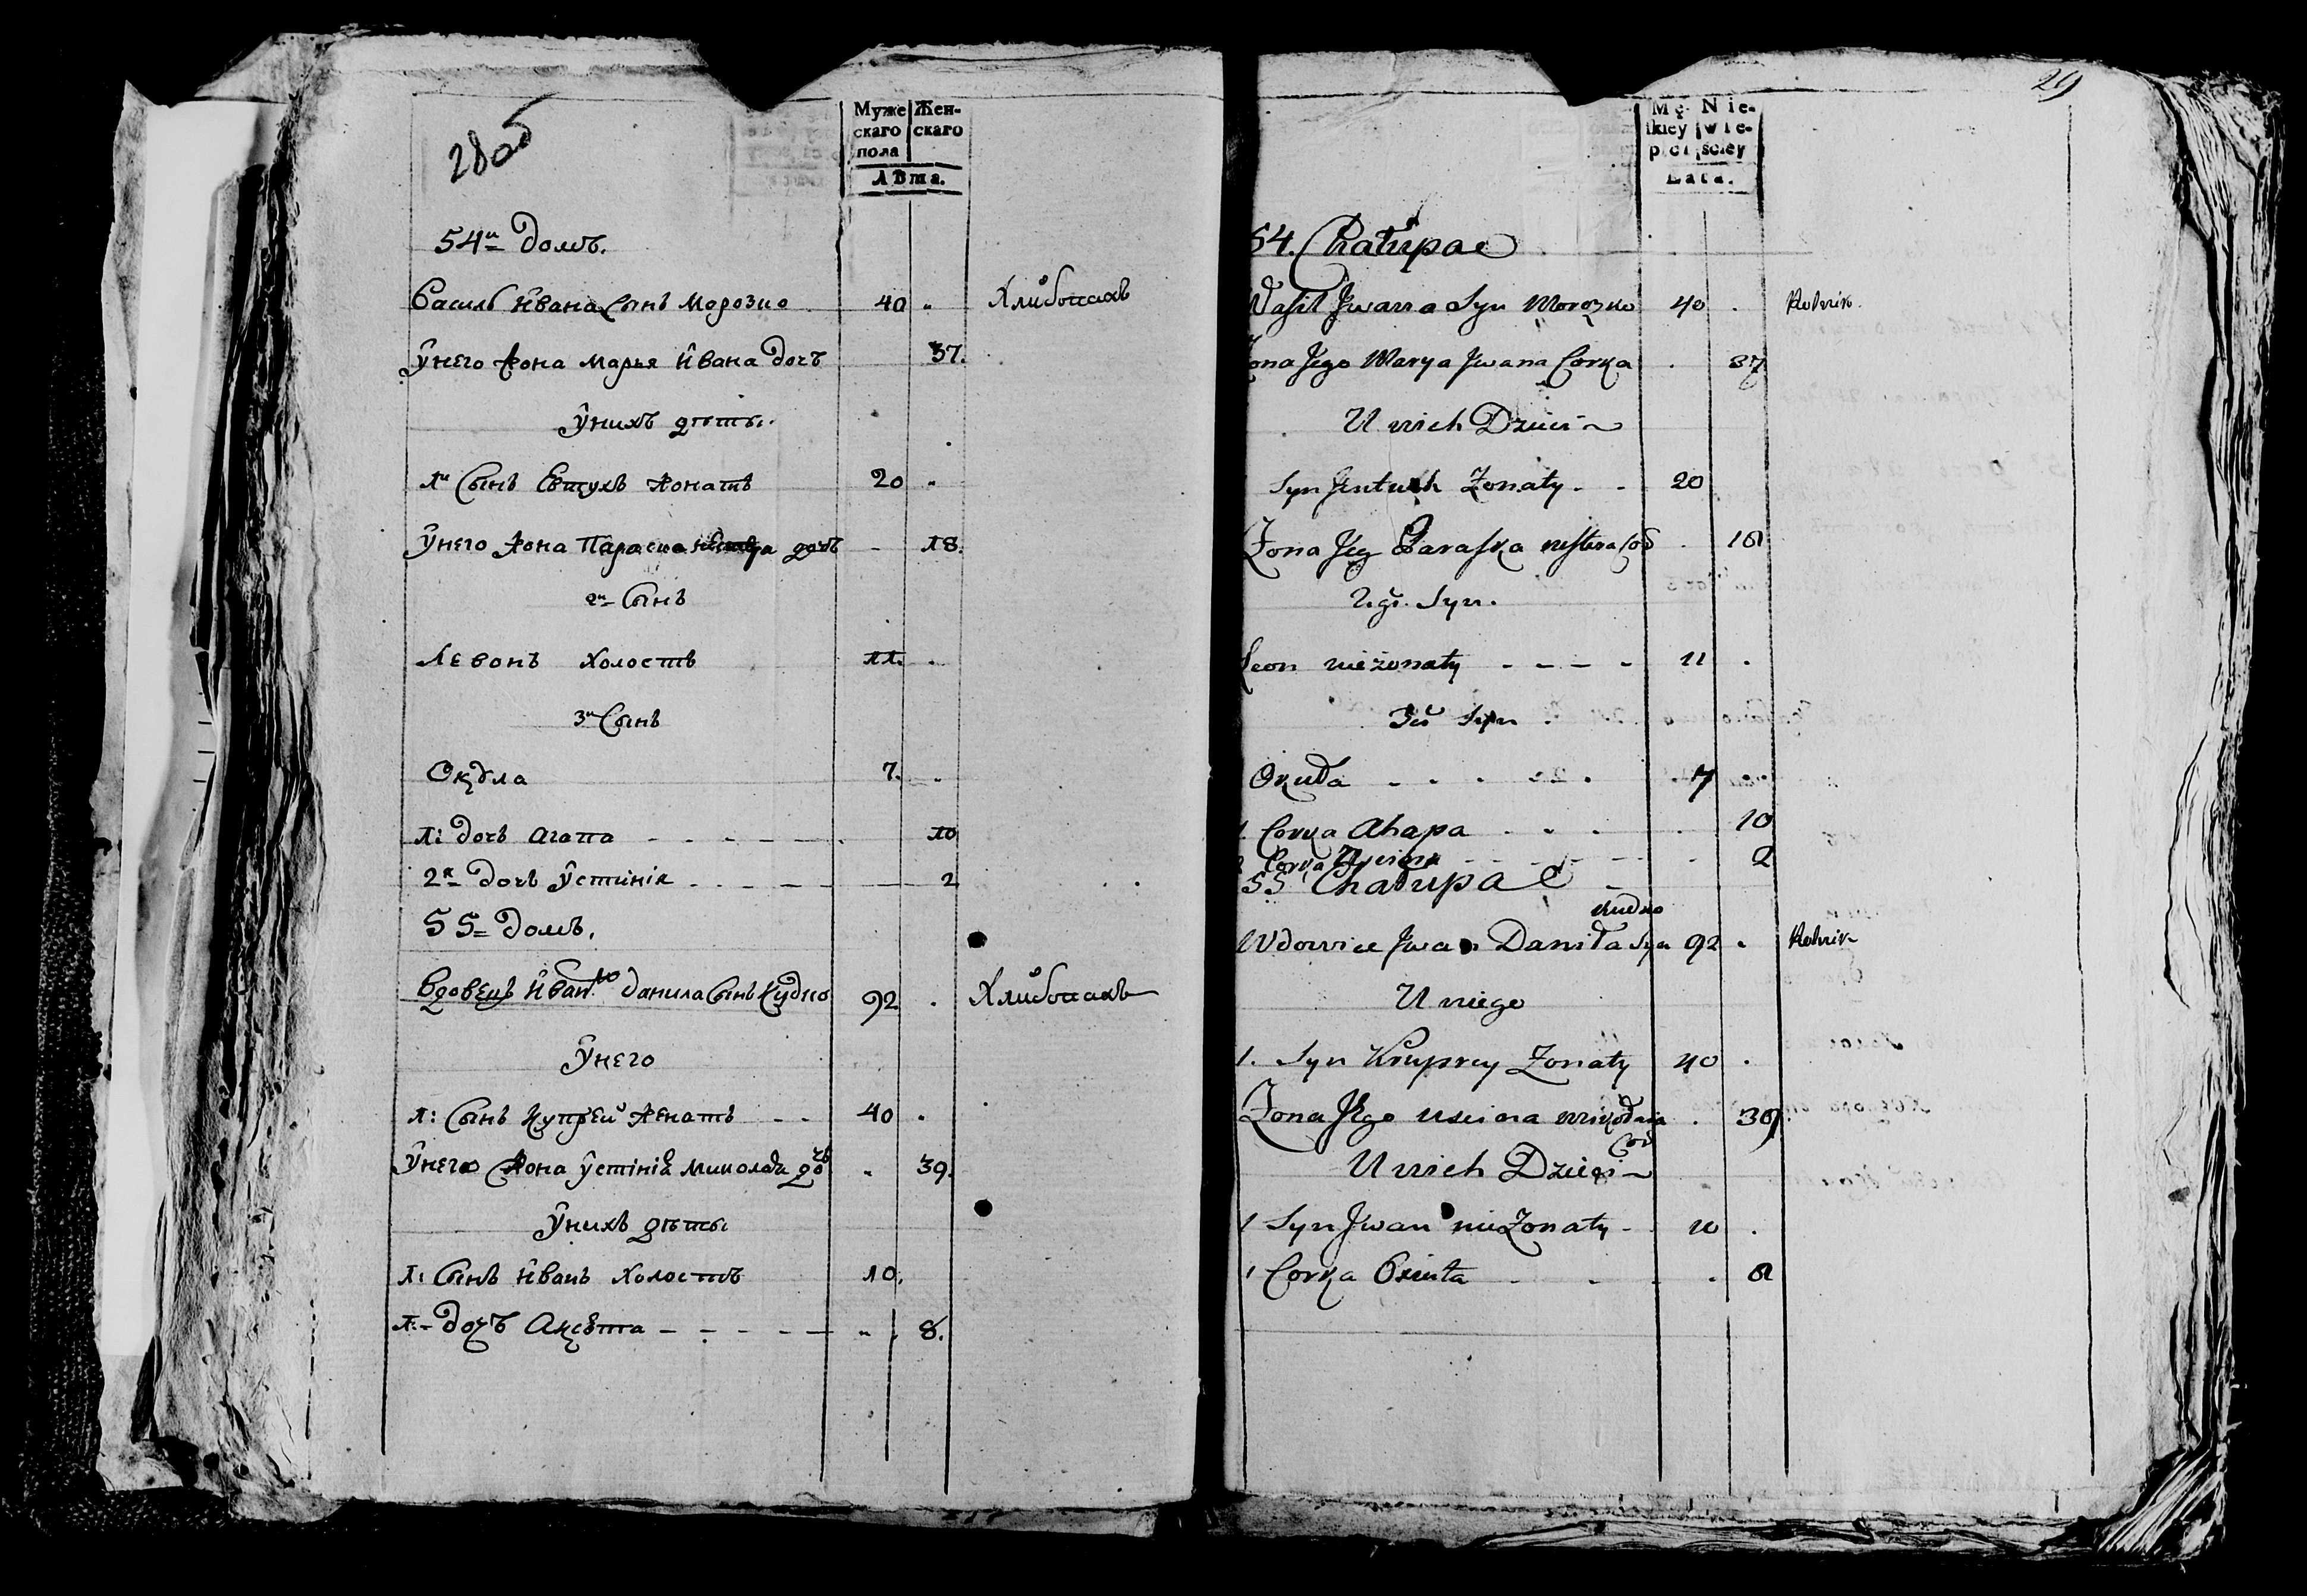 28об
Муже Жен-
скаго скаго
пола
Лѣта.
54й домъ.
Василь Ивана сынъ Морозко 40 Хлибопахъ
У него жона Марья Ивана дочъ 37.
У нихъ дѣты.
1й сынъ Евтухъ жонатъ 20
У него жона Параска дочъ 18.
2й сынъ
Левонъ холостъ 11.
3й сынъ
Окула 7.
1: дочъ Агапа 10
2я дочъ Устинія 2
55= домъ.
Вдовецъ Иванъ Данила сынъ Кудко 92 Хлибопахъ
У него
1: сынъ Купрей женатъ 40
У него жона Устинія Миколая дочъ 39.
У нихъ дѣты
1: сынъ Иванъ холостъ 10.
1:- дочъ Аксѣта 8.
29
Mę- Nie-
skiey wie-
płci sciey
Lata.
54. Chałupa
Wasil Jwana Syn Morozko 40 Rolnik
Zona Jego Marya Jwana Corka 37
U nich Dzieci
Syn Jentuch Zonaty 20
Zona Jeg Paraska nestera Cor 18
2gi. Syn.
Leon niezonaty 11
3ci Syn
Okuła 7
1. Corka Ahapa 10
2 Corka 2
55 Chałupa
Kudko
Wdowiec Jwan Daniła Syn 92 Rolnik
U niego
1. Syn Kruprey Zonaty 40
Zona Jego Uscina mikołaia 39
Cor
U nich Dzieci
1 Syn Jwan nieZonaty 10
1 Corka Oxieta 8